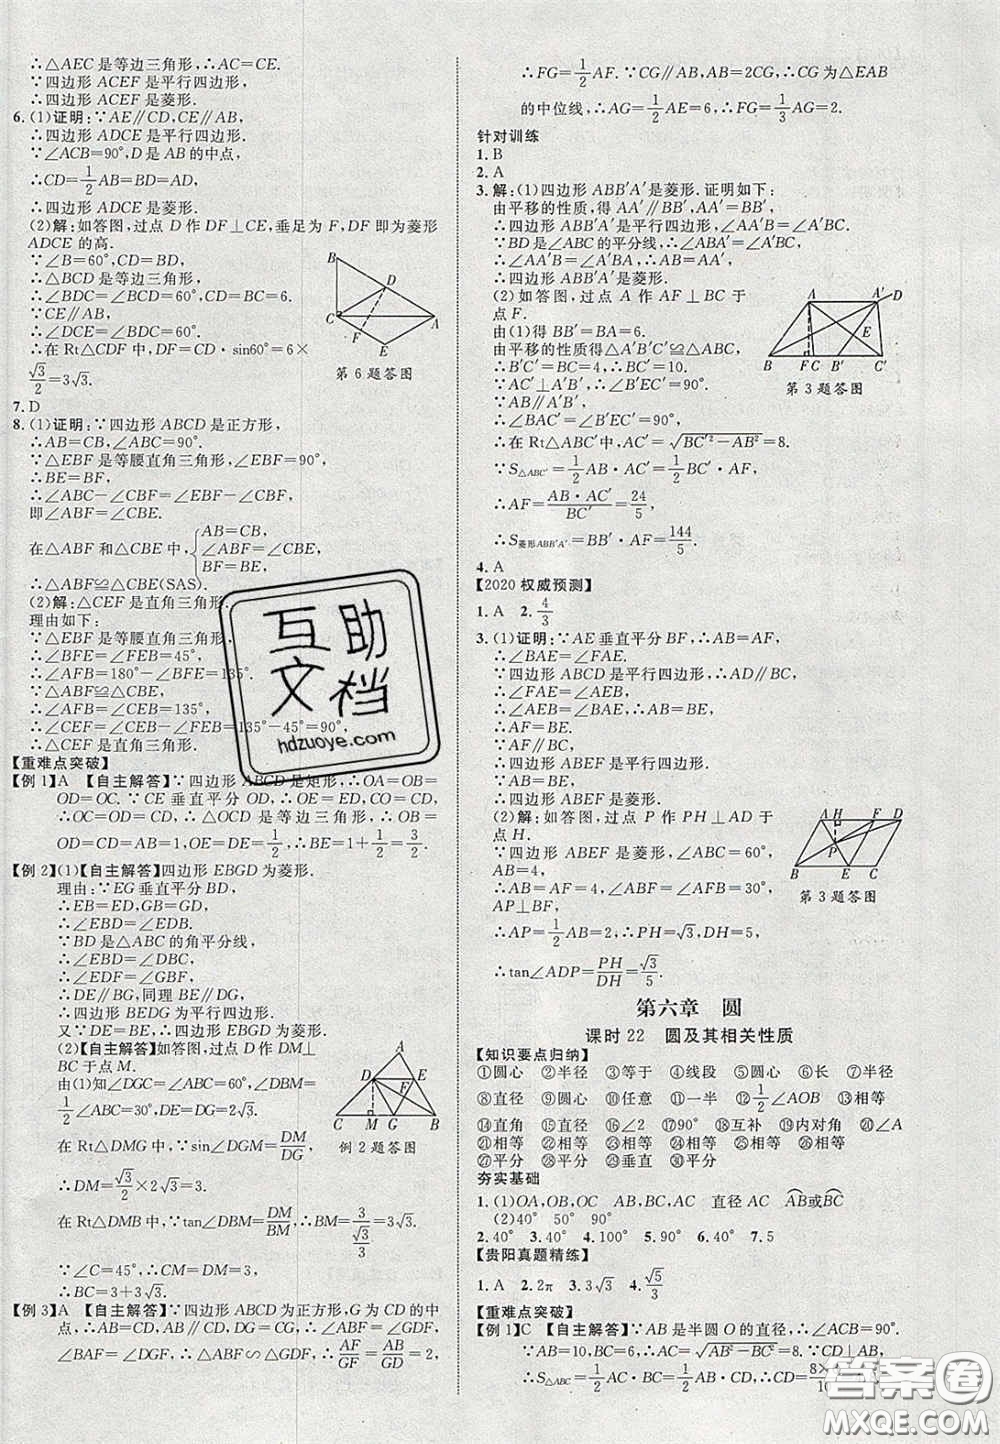 ∴△AEC是等边三角形,∴AC=CE.
∴四边形ACEF是平行四边形,
∴四边形ACEF是菱形.
6.(1)证明:∵AE∥CD,CE∥AB,
∴四边形ADCE是平行四边形.
∵∠ACB=90°,D是AB的中点,
∴CD=1/2AB=BD=AD,
∴四边形ADCE是菱形.
(2)解:如答图,过点D作DF⊥CE,垂足为F,DF即为菱形
ADCE的高.
∵∠B=60°,CD=BD,
∴△BCD是等边三角形,
∴∠BDC=∠BCD=60°,CD=BC=6.
∵CE∥AB,
∴∠DCE=∠BDC=60°.
∴在Rt△CDF中,DF=CD·sin60°=6×
√3/2=3√3.
B
D
C
A
F
E
第6题答图
7.D
8.(1)证明:∵四边形ABCD是正方形,
∴AB=CB,∠ABC=90°.
∵△EBF是等腰直角三角形,∠EBF=90°,
∴BE=BF,
∴∠ABC-∠CBF=∠EBF-∠CBF,
即∠ABF=∠CBE.
在△ABF和△CBE中,{AB=CB,
∠ABF=∠CBE,
BF=BE,
∴△ABF≌△CBE(SAS).
(2)解:△CEF是直角三角形.
理由如下:
∵△EBF是等腰直角三角形,
∴∠BFE=∠FEB=45°,
∴∠AFB=180°-∠BFE=135°.
∵△ABF≌△CBE,
∴∠CEB=∠AFB=135°,
∴∠CEF=∠CEB-∠FEB=135°-45°=90°,
∴△CEF是直角三角形.
【重难点突破】
【例1】A 【自主解答】∵四边形ABCD是矩形,∴OA=OB=
OD=OC.∵CE垂直平分OD,∴OE=ED,CO=CD,
∴OC=OD=CD,∴△OCD是等边三角形,∴OB=
OD=CD=AB=1,∴OE=DE=1/2,∴BE=1+1/2=3/2.
【例2】(1)【自主解答】四边形EBGD为菱形.
理由:∵EG垂直平分BD,
∴EB=ED,GB=GD,
∴∠EBD=∠EDB.
∵BD是△ABC的角平分线,
∴∠EBD=∠DBC,
∴∠EDF=∠GBF,
∴DE∥BG,同理BE∥DG,
∴四边形BEDG为平行四边形.
又∵DE=BE,∴四边形EBGD为菱形.
(2)【自主解答】如答图,过点D作DM⊥
BC于点M.
由(1)知∠DGC=∠ABC=30°,∠DBM=
1/2∠ABC=15°,DE=DG=2√3.
在Rt△DMG中,∵sin∠DGM=DM/DG,
A
D
E
F
C
M
G
B
例2题答图
∴DM=√3/2×2√3=3.
在Rt△DMB中,∵tan∠DBM=DM/BM,∴BM=3/(√3/3)=3√3.
∵∠C=45°,∴CM=DM=3,
∴BC=3+3√3.
【例3】A 【自主解答】∵四边形ABCD为正方形,G为CD的中
点,∴AB=CD,AB∥CD,∴∠ABF=∠GDF,
∠BAF=∠DGF,∴△ABF∽△GDF,∴AF/GF=AB/GD=2,
∴FG=1/2AF.∵CG∥AB,AB=2CG,∴CG为△EAB
的中位线,∴AG=1/2AE=6,∴FG=1/3AG=2.
针对训练
1.B
2.A
3.解:(1)四边形ABB′A′是菱形.证明如下:
由平移的性质,得AA′∥BB′,AA′=BB′,
∴四边形ABB′A′是平行四边形,∠AA′B=∠A′BC.
∵BD是∠ABC的平分线,∴∠ABA′=∠A′BC,
∴∠AA′B=∠A′BA,∴AB=AA′,
∴四边形ABB′A′是菱形.
(2)如答图,过点A作AF⊥BC于
点F.
由(1)得BB′=BA=6.
由平移的性质得△A′B′C′≌△ABC,
∴B′C′=BC=4,∴BC′=10.
∵AC′⊥A′B′,∴∠B′EC′=90°.
∵AB∥A′B′,
∴∠BAC′=∠B′EC′=90°.
∴在Rt△ABC′中,AC′=√(BC′²-AB²)=8.
∵S△ABC′=1/2AB·AC′=1/2BC′·AF,
∴AF=AB·AC′/BC′=24/5,
∴S菱形ABB′A′=BB′·AF=144/5.
A
A′
D
E
B
F
C
B′
C′
第3题答图
4.A
【2020权威预测】
1.A 2.4/3
3.(1)证明:∵AE垂直平分BF,∴AB=AF,
∴∠BAE=∠FAE.
∵四边形ABCD是平行四边形,∴AD∥BC,
∴∠FAE=∠AEB,∴∠AEB=∠BAE,
∴AB=BE,
∴AF=BE.
∵AF∥BE,
∴四边形ABEF是平行四边形.
∵AB=BE,
∴四边形ABEF是菱形.
(2)解:如答图,过点P作PH⊥AD于
点H.
∵四边形ABEF是菱形,∠ABC=60°,
∴AB=AF=4,∠ABF=∠AFB=30°,
AP⊥BF,
∴AP=1/2AB=2,∴PH=√3,DH=5,
∴tan∠ADP=PH/DH=√3/5.
A
H
F
D
P
B
E
C
第3题答图
第六章 圆
课时22 圆及其相关性质
【知识要点归纳】
①圆心 ②半径 ③等于 ④线段 ⑤圆心 ⑥长 ⑦半径
⑧直径 ⑨圆心 ⑩任意 ⑪一半 ⑫1/2∠AOB ⑬相等
⑭直角 ⑮直径 ⑯∠2 ⑰90° ⑱互补 ⑲内对角 ⑳∠A
㉑相等 ㉒相等 ㉓相等 ㉔相等 ㉕相等 ㉖相等
㉗平分 ㉘平分 ㉙垂直 ㉚平分
夯实基础
1.(1)OA,OB,OC AB,BC,AC 直径AC AB或BC
(2)40° 50° 90°
2.40° 3.40° 4.100° 5.90° 6.40° 7.5
【贵阳真题精练】
1.A 2.2π 3.3√3 4.√5/3
【重难点突破】
【例1】C 【自主解答】∵AB是半圆O的直径,∴∠ACB=90°.
∵AB=10,BC=6,∴AC=√(AB²-BC²)=8.∵CD⊥AB,
∴S△ABC=1/2AC·BC=1/2AB·CD,∴CD=
互助
文档
hdzuoye.com
答案圈
MXQE.COM